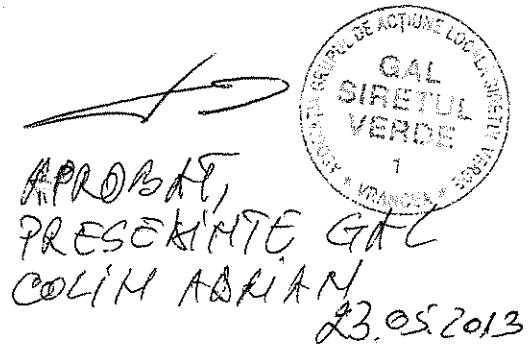 ASOCIAȚIA GRUPUL DE ACȚIUNE LOCALĂ SIRETUL VERDE
GAL
SIRETUL
VERDE
1
* VRANCEA *
APROBAT,
PREȘEDINTE GAL
COLIN ADRIAN
23.05.2013